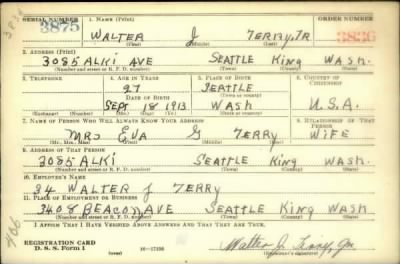 SERIAL NUMBER 1. NAME (Print) ORDER NUMBER
3875 WALTER J TERRY, JR 3836
(First) (Middle) (Last)
2. ADDRESS (Print)
3085 ALKI AVE SEATTLE KING WASH.
(Number and street or R. F. D. number) (Town) (County) (State)
3. TELEPHONE 4. AGE IN YEARS 5. PLACE OF BIRTH 6. COUNTRY OF CITIZENSHIP
27 SEATTLE
DATE OF BIRTH (Town or county)
SEPT 18 1913 WASH U.S.A.
(Exchange) (Number) (Mo.) (Day) (Yr.) (State or country)
7. NAME OF PERSON WHO WILL ALWAYS KNOW YOUR ADDRESS 8. RELATIONSHIP OF THAT PERSON
MRS EVA G TERRY WIFE
(Mr., Mrs., Miss) (First) (Middle) (Last)
9. ADDRESS OF THAT PERSON
3085 ALKI SEATTLE KING WASH.
(Number and street or R. F. D. number) (Town) (County) (State)
10. EMPLOYER'S NAME
34 WALTER J TERRY
11. PLACE OF EMPLOYMENT OR BUSINESS
3408 BEACON AVE SEATTLE KING WASH
(Number and street or R. F. D. number) (Town) (County) (State)
I AFFIRM THAT I HAVE VERIFIED ABOVE ANSWERS AND THAT THEY ARE TRUE.
REGISTRATION CARD
D. S. S. Form 1 16—17105 Walter J. Terry, Jr.
(Registrant's signature)